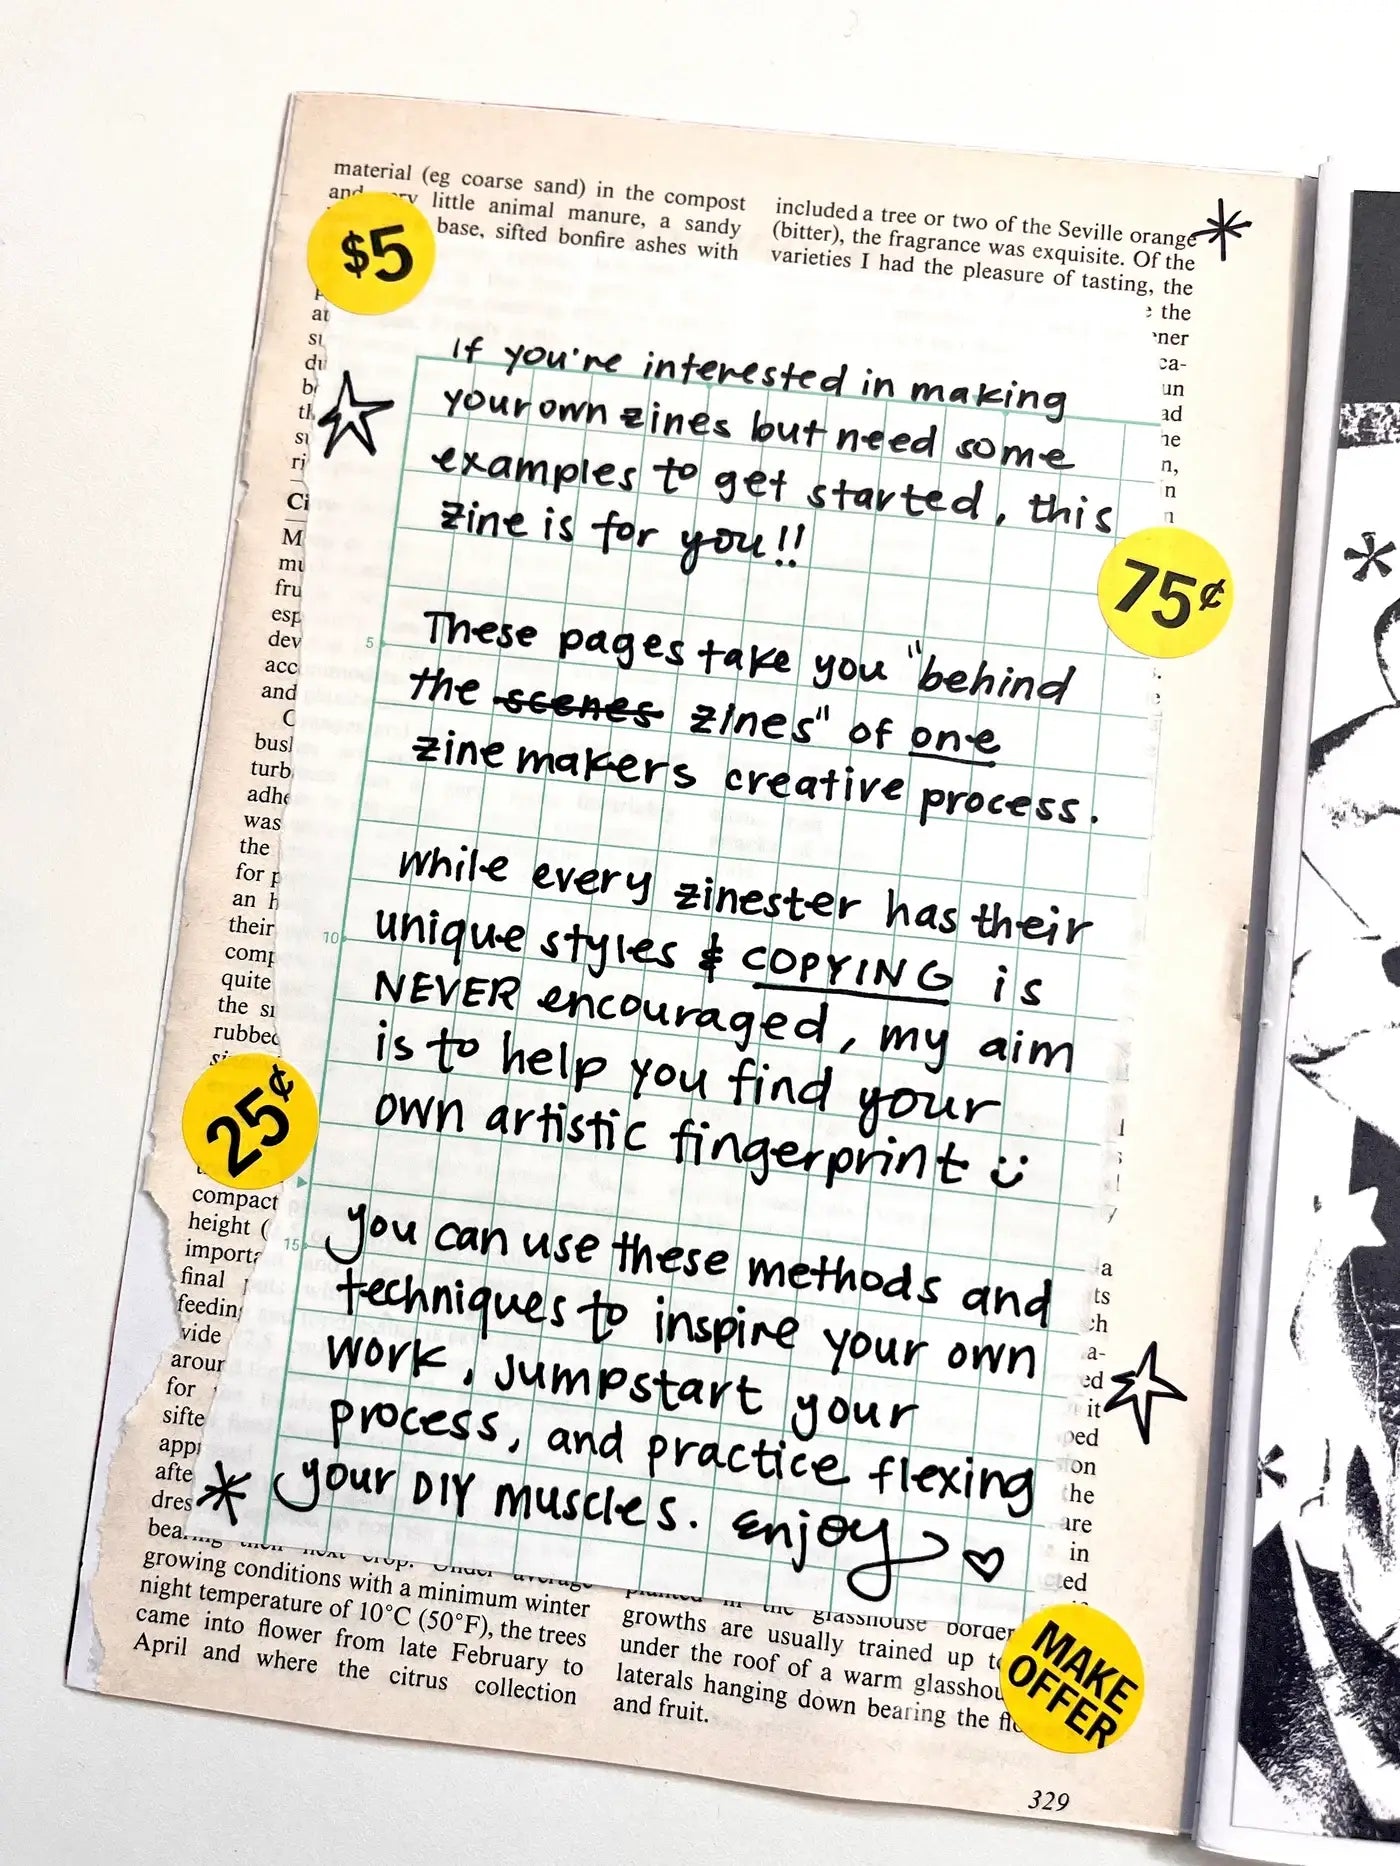 material (eg coarse sand) in the compost
and very little animal manure, a sandy
base, sifted bonfire ashes with
included a tree or two of the Seville orange
(bitter), the fragrance was exquisite. Of the
varieties I had the pleasure of tasting, the
$5
If you're interested in making
your own zines but need some
examples to get started, this
zine is for you!!
75¢
These pages take you "behind
the scenes zines" of one
zine makers creative process.
While every zinester has their
unique styles & COPYING is
NEVER encouraged, my aim
is to help you find your
own artistic fingerprint
25¢
you can use these methods and
techniques to inspire your own
work, jumpstart your
process, and practice flexing
your DIY muscles. Enjoy
5
10
15
the
at
du
Ci
M
mu
fru
esp
dev
acc
and
C
busl
turb
adhe
was
the
for p
an h
their
comp
quite
the
rubbed
compact
height (
importa
final
feeding
vide
arour
for
sifte
app
afte
dres
the
un
ad
he
n,
n
a
ts
ed
it
ped
on
the
are
in
cted
bearing their next crop. Under average
growing conditions with a minimum winter
night temperature of 10°C (50°F), the trees
came into flower from late February to
April and where the citrus collection
planted in the glasshouse border
growths are usually trained up to
under the roof of a warm glasshou
laterals hanging down bearing the flo
and fruit.
MAKE
OFFER
329